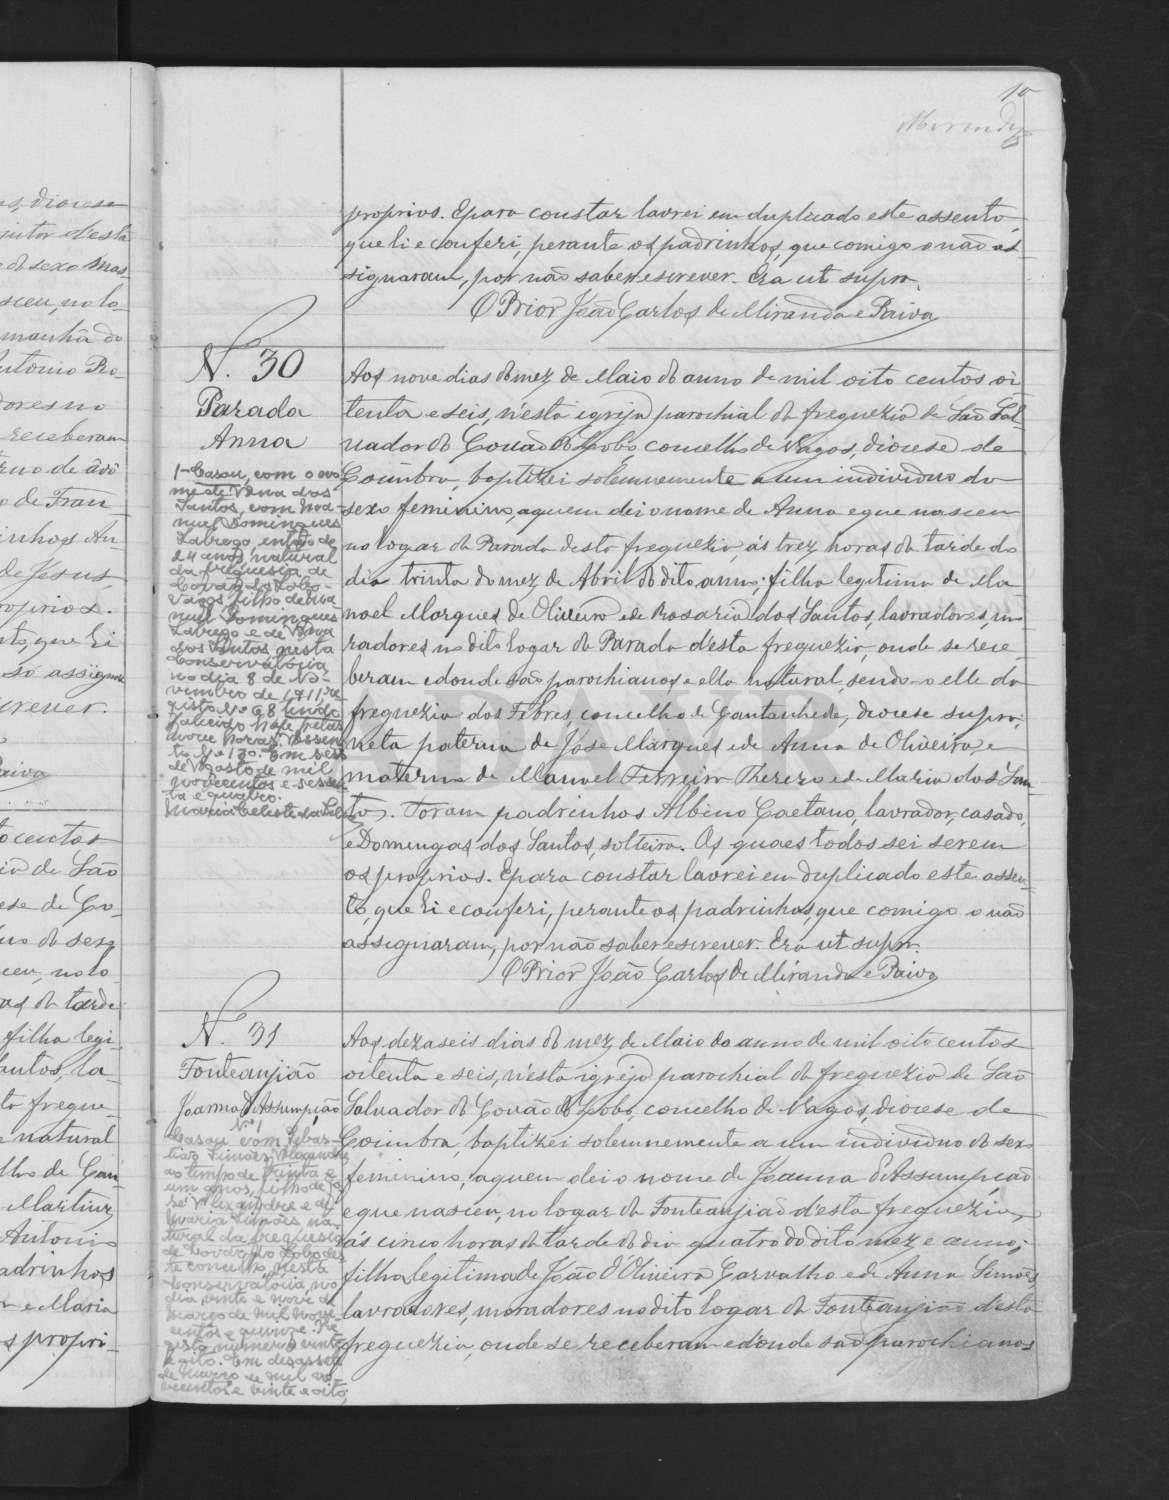 10
Miranda
proprios. E para constar lavrei em duplicado este assento,
que li e conferi, perante os padrinhos, que comigo o não as
signaram, por não saberem escrever. Era ut supra.
O Prior João Carlos de Miranda e Paiva
N. 30
Parada
Anna
1- Casou, com o no
me de Anna dos
Santos, com Ma-
nuel Domingues
Labrego, então de
24 anos, natural
da freguesia de
Covão do Lobo -
Vagos filho de Ma
nuel Domingues
Labrego e de
dos Santos, nesta
Conservatória
no dia 8 de No-
vembro de 1911, re
gisto Nº 68, tendo
falecido hoje pelas
doze horas. Assen
to Nº 130. Em seis
de Agosto de mil
novecentos e sessen
ta e quatro.
Maria Celeste da
Aos nove dias do mez de Maio do anno de mil oito centos oi
tenta e seis, n'esta igreja parochial da freguezia de São Sal
vador do Covão do Lobo, concelho de Vagos, diocese de
Coimbra, baptizei solemnemente a um individuo do
sexo feminino, a quem dei o nome de Anna e que nasceu
no logar da Parada desta freguezia, ás trez horas da tarde do
dia trinta do mez de Abril do dito anno; filha legitima de Ma
noel Marques de Oliveira e de Rosaria dos Santos, lavradores, mo
radores no dito logar da Parada d'esta freguezia, onde se rece
beram e d'onde são parochianos e ella natural, sendo-o elle da
freguezia dos Febres, concelho de Cantanhede, diocese supra;
neta paterna de José Marques e de Anna de Oliveira, e
materna de Manuel Ferreira Therezo e de Maria dos San
tos. Foram padrinhos Albino Caetano, lavrador, casado,
e Domingas dos Santos, solteira. Os quaes todos sei serem
os proprios. E para constar lavrei em duplicado este assen-
to, que li e conferi, perante os padrinhos, que comigo o não
assignaram, por não saber escrever. Era ut supra.
O Prior João Carlos de Miranda e Paiva
N. 31
Fonteanjião
Joanna d'Assumpção
Nº 1
Casou com Sebas-
tião Simões Alexandre
ao tempo de trinta e
um anos, filho de Jo
sé Alexandre e de
Maria Simões na-
tural da freguesia
de Covão do Lobo des
te concelho, nesta
Conservatória, no
dia vinte e nove de
Março de mil nove
centos e quinze. Re
gisto numero vinte
e oito. Em desassete
de Março de mil no-
vecentos e vinte e oito,
Aos dezaseis dias do mez de Maio do anno de mil oito centos
oitenta e seis, n'esta igreja parochial da freguezia de São
Salvador do Covão do Lobo, concelho de Vagos, diocese de
Coimbra, baptizei solemnemente a um individuo do sexo
feminino, a quem dei o nome de Joanna d'Assumpção
e que nasceu, no logar da Fonteanjião d'esta freguezia,
ás cinco horas da tarde do dia quatro do dito mez e anno;
filha legitima de João d'Oliveira Carvalho e de Anna Simões,
lavradores, moradores no dito logar da Fonteanjião d'esta
freguezia, onde se receberam e d'onde são parochianos